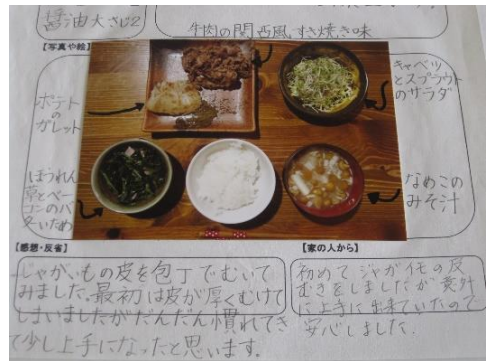 醤油大さじ2
牛肉の関西風すき焼き味
【写真や絵】
ポテト
の
ガレット
キャベツ
とスプラウト
のサラダ
ほうれん
草とベー
コンのバ
ターいため
なめこの
みそ汁
【感想・反省】
じゃがいもの皮を包丁でむいて
みました。最初は皮が厚くむけて
しまいましたがだんだん慣れてき
て少し上手になったと思います。
【家の人から】
初めてジャガイモの皮
むきをしましたが意外
に上手に出来ていたので
安心しました.